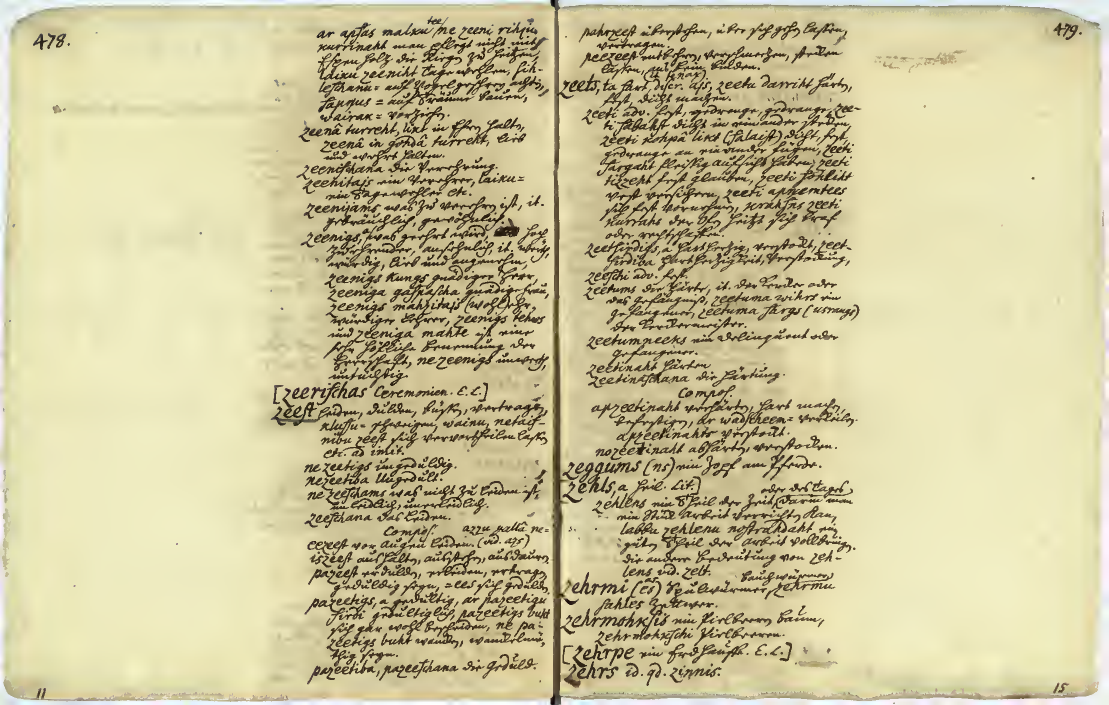 478.
tee/
ar apsas malku ne zeeni rihju
kurrinaht man pflegt nicht mit
Espen Holz die Riegen zu heitzen,
laiku zeeniht Tage wehlen, sih-
leschanu = auf Vogelgeschrey achten,
sapņus = auf Träume bauen,
wairak = vorziehn.
zeenâ turreht, likt in Ehren halten,
zeenâ in gohdâ turreht, lieb
und wehrt halten.
zeenischana die Verehrung.
zeenitajs ein Verehrer, laiku =
ein Tagewehler etc.
zeenijams was zu verehren ist, it.
gebräuchlich, gewöhnlich.
zeenigs, was geehrt wird, hoch
zu ehrender, ansehnlich, it. werth,
würdig, lieb und angenehm,
zeenigs kungs gnädiger Herr,
zeeniga gaspascha gnädige Frau,
zeenigs mahzitajs (wohl) ehr-
würdiger Lehrer, zeenigs tehws
und zeeniga mahte ist eine
sehr höfliche Benennung der
Herrschaft, ne zeenigs unwerth,
untüchtig.
[zeerischas Ceremonien. E. L.]
zeest leiden, dulden, büßen, vertragen,
klussu = schweigen, wainu, netaiс-
nibu zeest sich verurtheilen lassen
etc. ad imit.
ne zeetigs ungeduldig.
nezeetiba Ungedult.
ne zeeschams was nicht zu leiden ist,
unleidlich, unerleidlich.
zeeschana das Leiden.
Compos. azzu pallâ ne-
eezeest vor Augen leiden. (vid. azs)
iszeest aushalten, ausstehn, ausdauren
pazeest erdulden, erleiden, ertragen
geduldig seyn, = ees sich gedulden,
pazeetigs, a gedultig, ar pazeetigu
sirdi gedultiglich, pazeetigs buht
sich gar wohl bescheiden, ne pa-
zeetigs buht wanken, wankelmü-
thig seyn.
pazeetiba, pazeeschana die Geduld.
11
479.
pahrzeest überstehen, über sich gehn lassen,
vertragen.
peezeest entbehren, verschmerzen, stecken
lassen,
zeets, ta hart, discr. ass, zeetu darriht härten,
fest, dicht machen.
zeeti adv. fest, gedrange, gedrange, zee-
ti salikt dicht in einander stecken,
zeeti kohpâ likt (salaist) dicht, fest,
gedrange an einander fügen, zeeti
sargaht fleissig aufsicht haben, zeeti
tizzeht fest glauben, zeeti sohlitt
vest versichern, zeeti apņemtees
sich fest vornehmen, krahsns zeeti
kurrahs der Ofen heitzt sich braf
oder rechtschaffen.
zeetsirdigs, a Hartherzig, verstockt, zeet-
sirdiba Hartherzigkeit, Verstockung,
zeeschi adv. fest.
zeetums die Härte, it. der Kercker oder
das Gefängniß, zeetuma wihrs ein
Gefangener, zeetuma sargs (usrangs)
der Kerckermeister.
zeetumneeks ein Delinquent oder
Gefangener.
zeetinaht härten
zeetinaschana die Härtung.
Compos.
apzeetinaht verhärten, hart machen
befestigen, ar wadscheem = verkeilen.
apzeetinahts verstockt.
nozeetinaht abhärten, verstocken.
zeggums (ns) ein Zopf am Pferde.
zehls, a Heil. Lit.] oder des Tages
zehlens ein Theil der Zeit, darin man
ein Stück Arbeit verrichten kan,
labbu zehlenu nostrahdaht ein
guten Theil der Arbeit vollbringen.
die andere Bedeutung von zeh-
lens vid. zelt.
zehrmi (es) Spulwürmer, Bauchwürmer, zehrmu
sahles Zettwer.
zehrmohksis ein Pielbeeren baum,
zehrmohkschi Pielbeeren.
[zehrpe ein Erdhäufch. E. L.]
zehrs id. qd. zinnis.
15